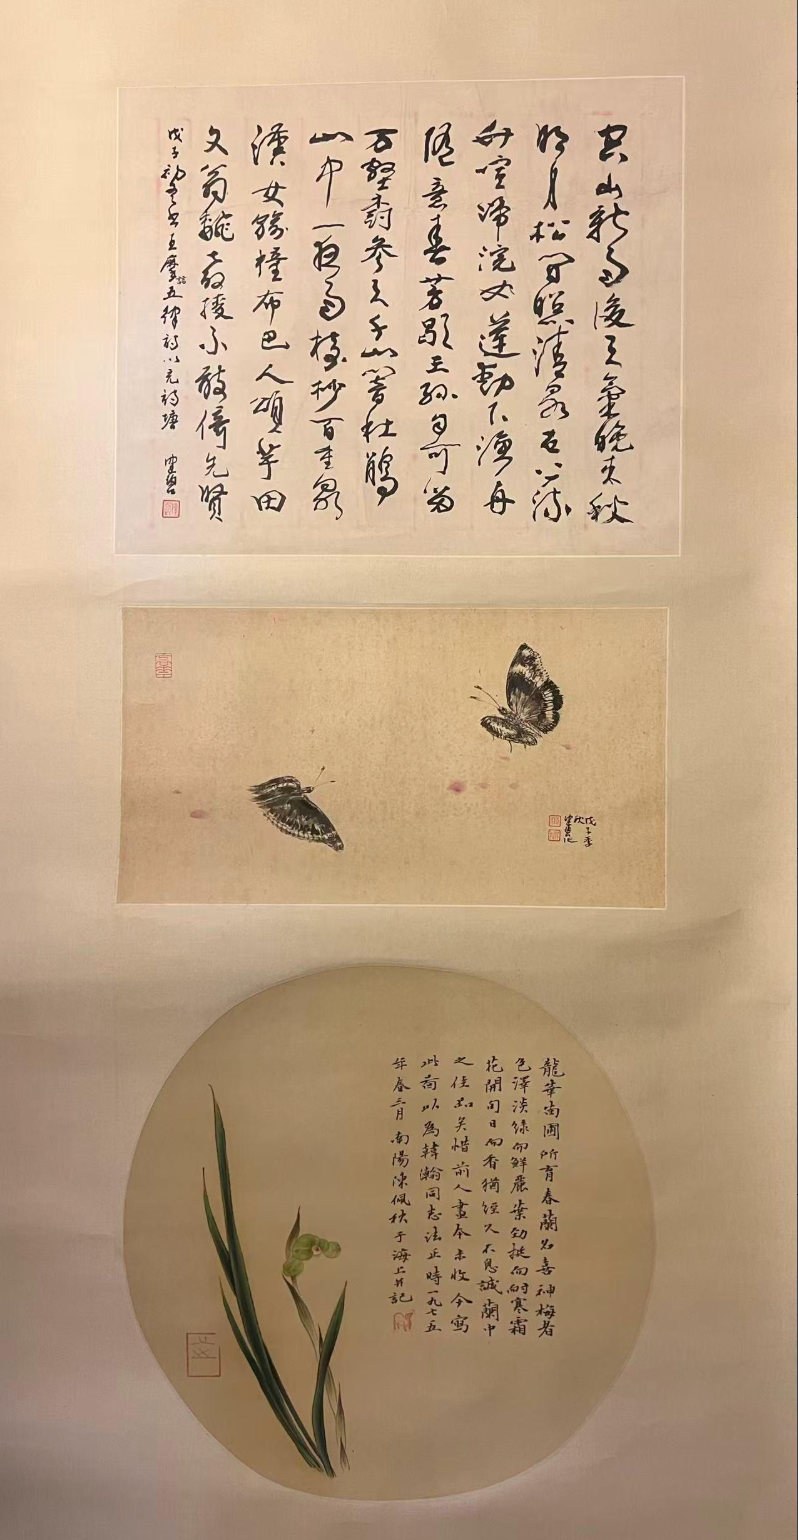 空山新雨後天氣晚來秋
明月松間照清泉石上流
竹喧歸浣女蓮動下漁舟
隨意春芳歇王孫自可留
万壑樹參天千山響杜鵑
山中一夜雨樹杪百重泉
漢女輸橦布巴人頌芋田
文翁翻教授不敢倚先賢
戊子初冬書王摩詰五律詩以充詩塘
戊子季
秋
龍華苗圃所育春蘭名喜神梅者
色澤淡綠而鮮麗葉勁挺而耐寒霜
花開旬日而香猶經久不息誠蘭中
之佳品矣惜前人畫本未收今寫
此以為韓瀚同志法正時一九七五
年春三月南陽陳佩秋于海上并記